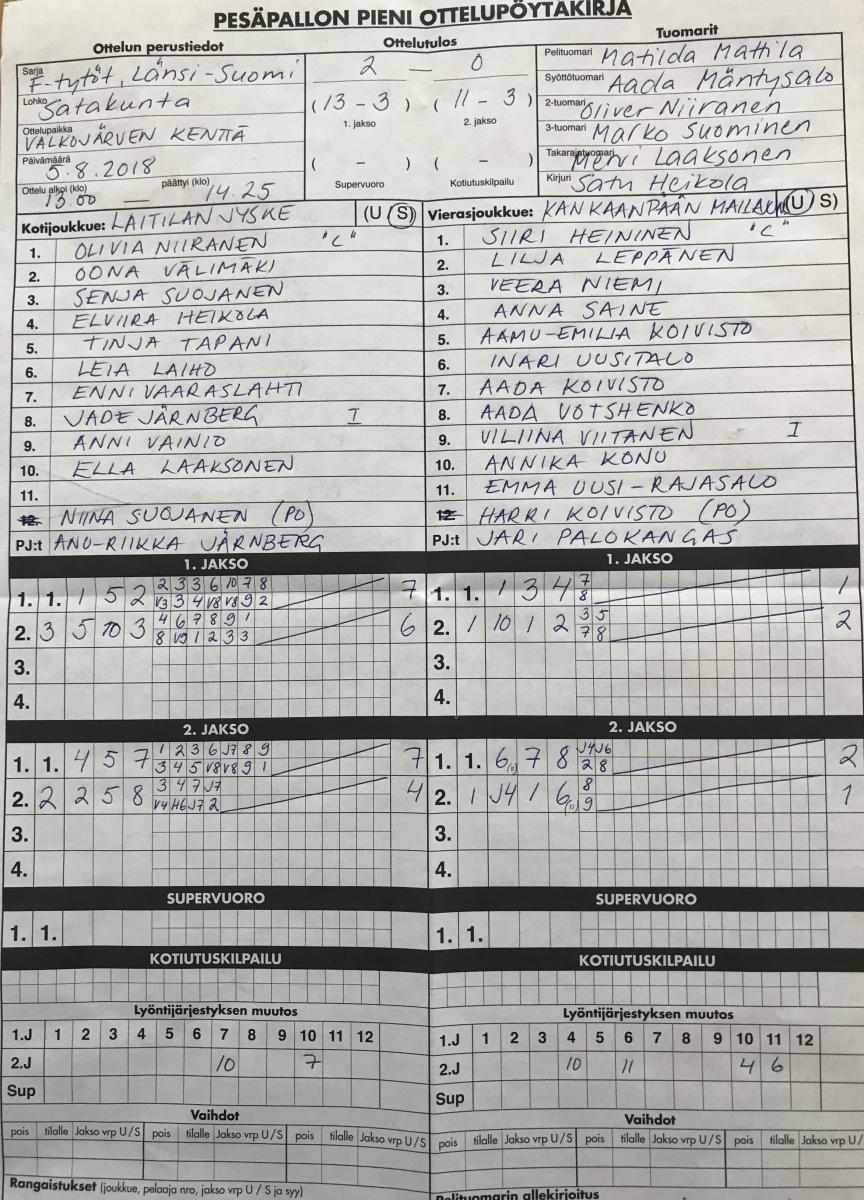 PESÄPALLON PIENI OTTELUPÖYTÄKIRJA
Ottelun perustiedot
Sarja F-tytöt, Länsi-Suomi
Lohko Satakunta
Ottelupaikka VALKOJÄRVEN KENTTÄ
Päivämäärä 5.8.2018
Ottelu alkoi (klo) 13.00 — päättyi (klo) 14.25
Ottelutulos
2 — 0
(13 - 3) (11 - 3)
1. jakso 2. jakso
( - ) ( - )
Supervuoro Kotiutuskilpailu
Tuomarit
Pelituomari Matilda Mattila
Syöttötuomari Aada Mäntysalo
2-tuomari Oliver Niiranen
3-tuomari Marko Suominen
Takarajatuomari Mervi Laaksonen
Kirjuri Satu Heikola
Kotijoukkue: LAITILAN JYSKE (U S)
1. OLIVIA NIIRANEN "C"
2. OONA VÄLIMÄKI
3. SENJA SUOJANEN
4. ELVIIRA HEIKOLA
5. TINJA TAPANI
6. LEIA LAIHO
7. ENNI VAARASLAHTI
8. JADE JÄRNBERG I
9. ANNI VAINIO
10. ELLA LAAKSONEN
11.
12. NIINA SUOJANEN (PO)
PJ:t ANU-RIIKKA JÄRNBERG
Vierasjoukkue: KANKAANPÄÄN MAILA (U S)
1. SIIRI HEININEN "C"
2. LILJA LEPPÄNEN
3. VEERA NIEMI
4. ANNA SAINE
5. AAMU-EMILIA KOIVISTO
6. INARI UUSITALO
7. AADA KOIVISTO
8. AADA VOTSHENKO
9. VILIINA VIITANEN I
10. ANNIKA KONU
11. EMMA UUSI-RAJASALO
12. HARRI KOIVISTO (PO)
PJ:t JARI PALOKANGAS
1. JAKSO
1. 1. 1 5 2 2 3 3 6 10 7 8 7
V3 3 4 V8 V8 9 2
2. 3 5 10 3 4 6 7 8 9 1 6
8 V9 1 2 3 3
3.
4.
1. JAKSO
1. 1. 1 3 4 7 1
8
2. 1 10 1 2 3 5 2
7 8
3.
4.
2. JAKSO
1. 1. 4 5 7 1 2 3 6 J7 8 9 7
3 4 5 V8 V8 9 1
2. 2 2 5 8 3 4 7 J7 4
V4 H6 J7 2
3.
4.
2. JAKSO
1. 1. 6 7 8 J4 J6 2
2 8
2. 1 J4 1 6 (11) 8 1
9
3.
4.
SUPERVUORO
1. 1.
SUPERVUORO
1. 1.
KOTIUTUSKILPAILU
KOTIUTUSKILPAILU
Lyöntijärjestyksen muutos
1.J 1 2 3 4 5 6 7 8 9 10 11 12
2.J 10 7
Sup
Lyöntijärjestyksen muutos
1.J 1 2 3 4 5 6 7 8 9 10 11 12
2.J 10 11 4 6
Sup
Vaihdot
pois tilalle Jakso vrp U/S pois tilalle Jakso vrp U/S pois tilalle Jakso vrp U/S
Vaihdot
pois tilalle Jakso vrp U/S pois tilalle Jakso vrp U/S pois tilalle Jakso vrp U/
Rangaistukset (joukkue, pelaaja nro, jakso vrp U / S ja syy)
Pelituomarin allekirjoitus